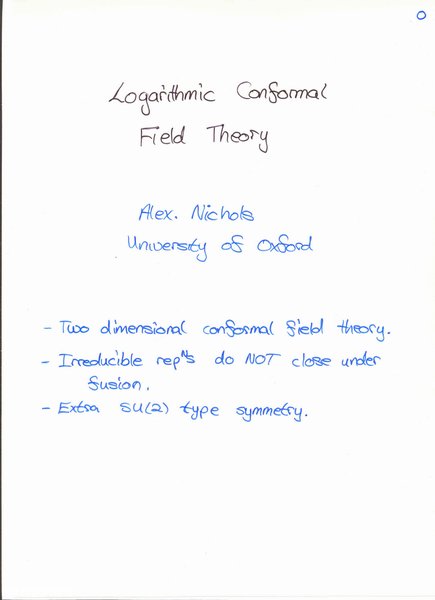 0
Logarithmic Conformal
Field Theory
Alex. Nichols
University of Oxford
- Two dimensional conformal field theory.
- Irreducible repⁿˢ do NOT close under
fusion.
- Extra SU(2) type symmetry.